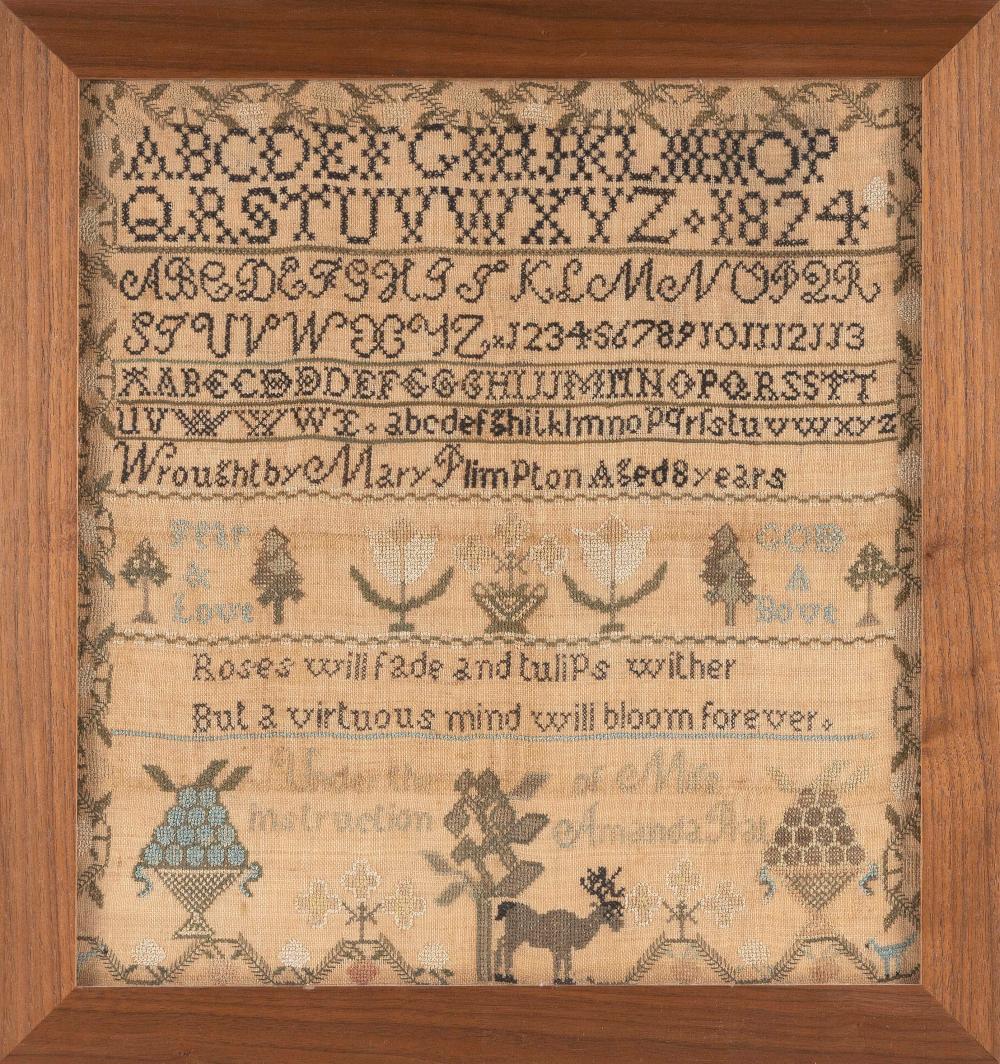 ABCDEFGHIJKLMNOP
QRSTUVWXYZ 1824
ABCDEFGHIJ KLMNOPQR
STUVWXYZ 12345678910111213
AABCCDDDEFGGGHIJJMMNOPQRSSTT
UVWXWÆ. abcdefghiiklmnopqrſstuvwxyz
Wrought by Mary Plimpton Aged 8 years
Fear GOD
& A
Love Bove
Roses will fade and tulips wither
But a virtuous mind will bloom forever.
Under the of Miss
instruction Amanda